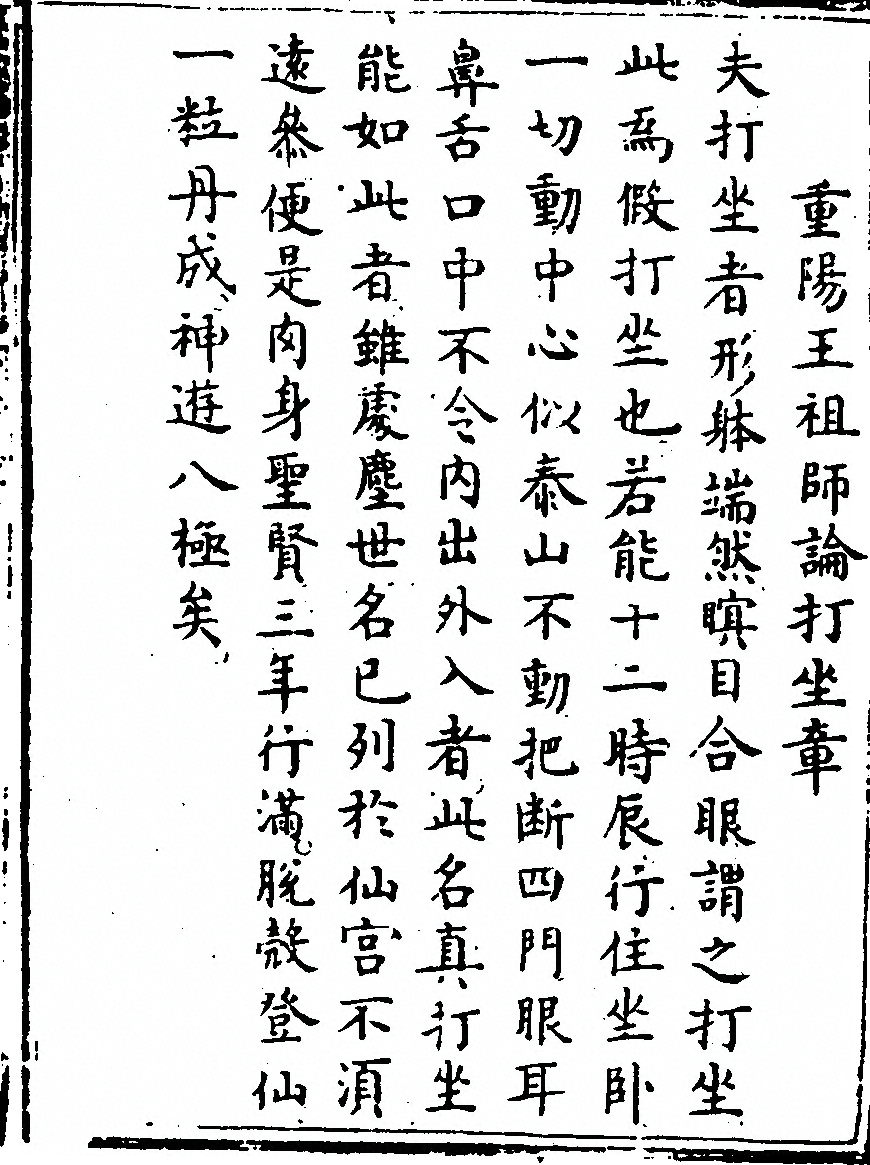 重陽王祖師論打坐章
夫打坐者形躰端然瞑目合眼謂之打坐
此爲假打坐也若能十二時辰行住坐卧
一切動中心似泰山不動把断四門眼耳
鼻舌口中不令內出外入者此名真打坐
能如此者雖處塵世名已列於仙宫不須
遠叅便是肉身聖賢三年行滿脫殻登仙
一粒丹成神遊八極矣